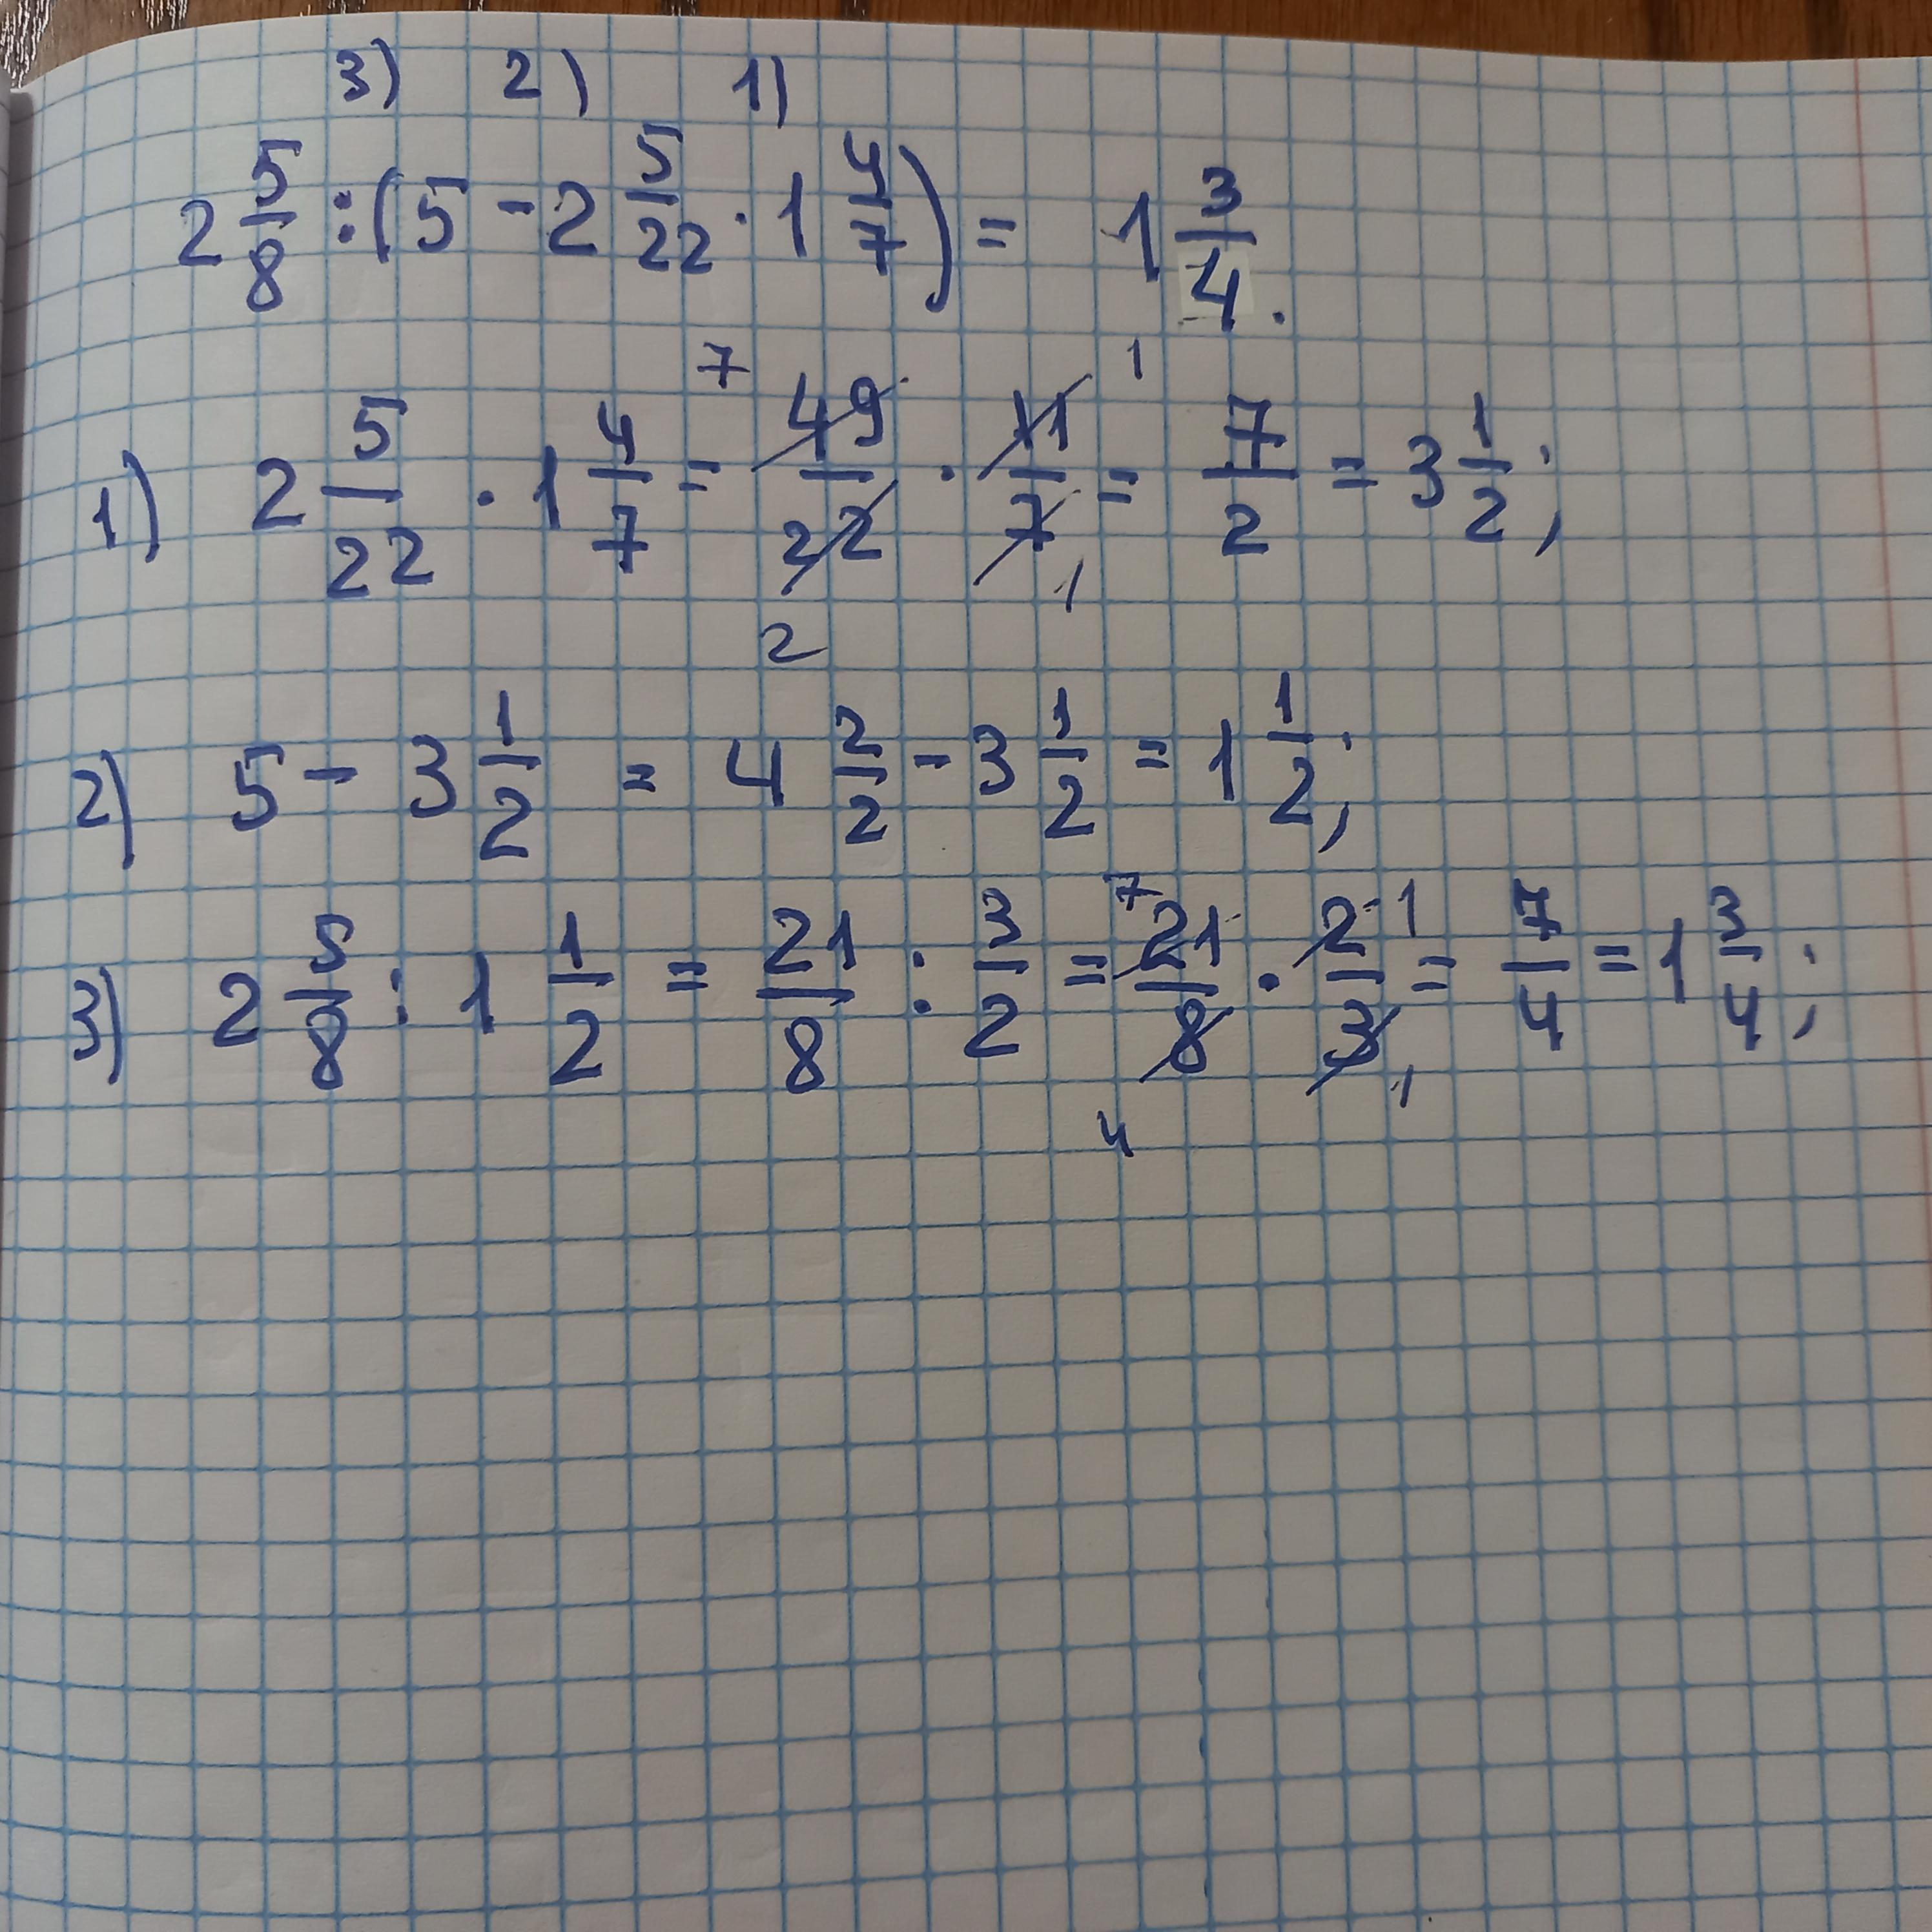 3) 2) 1)
2 5/8 : (5 - 2 5/22 · 1 4/7) = 1 3/4.
1) 2 5/22 · 1 4/7 = 7 49/22 2 · 11/7 1 1 = 7/2 = 3 1/2;
2) 5 - 3 1/2 = 4 2/2 - 3 1/2 = 1 1/2;
3) 2 5/8 : 1 1/2 = 21/8 : 3/2 = 7 21/8 4 · 2/3 1 1 = 7/4 = 1 3/4;